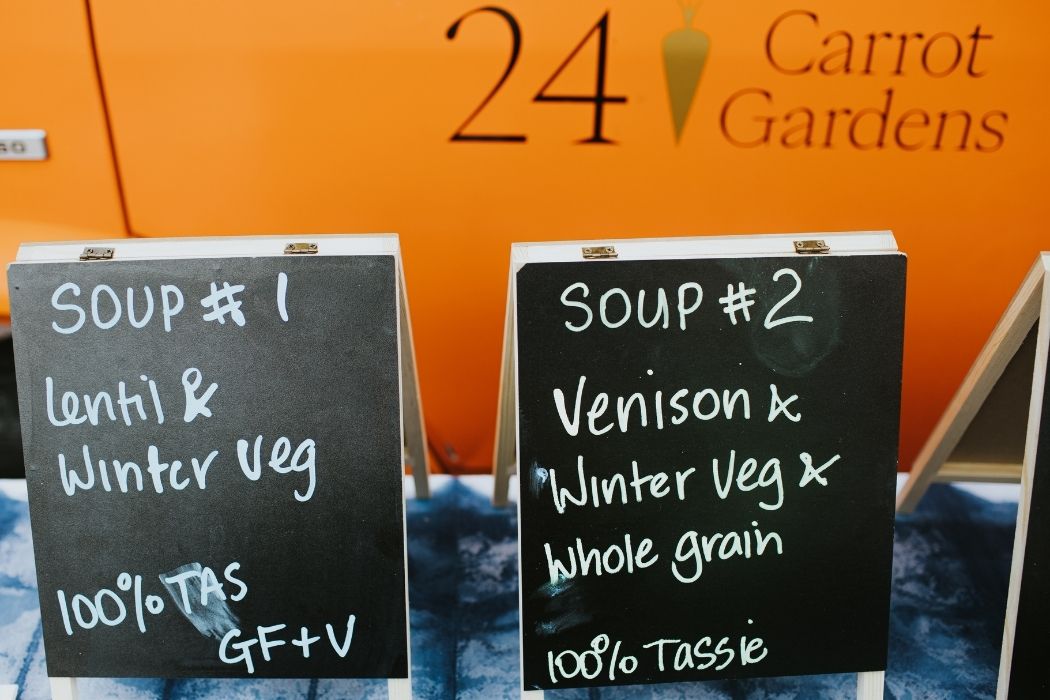 24
Carrot
Gardens
SOUP # 1
Lentil &
Winter Veg
100% TAS
GF+V
SOUP #2
Venison &
Winter Veg &
Whole grain
100% Tassie